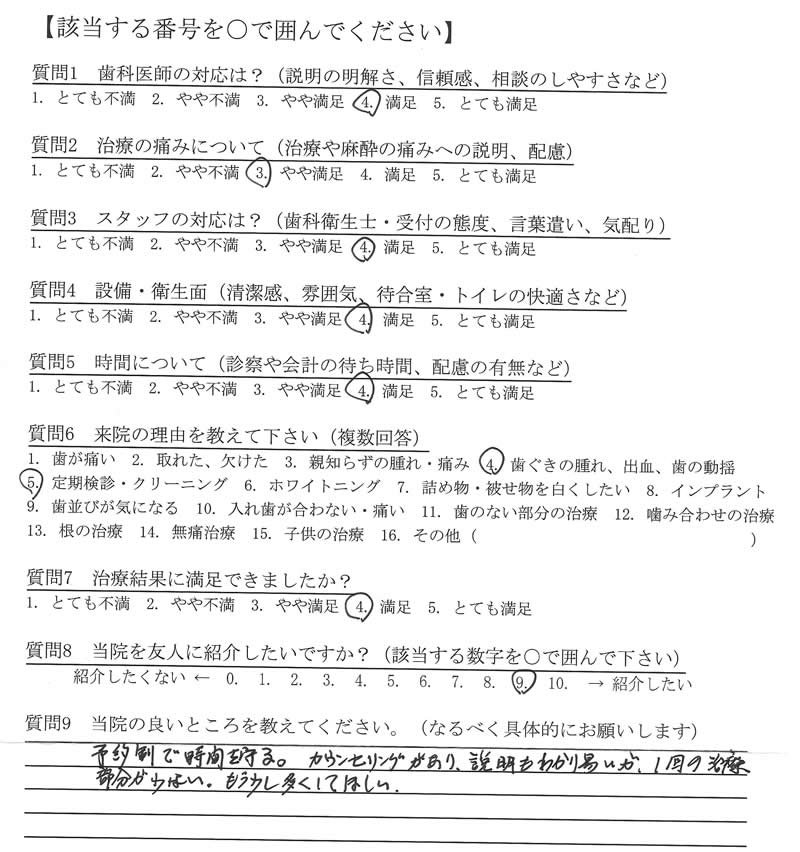 【該当する番号を○で囲んでください】
質問1 歯科医師の対応は？（説明の明解さ、信頼感、相談のしやすさなど）
1. とても不満 2. やや不満 3. やや満足 4. 満足 5. とても満足
質問2 治療の痛みについて（治療や麻酔の痛みへの説明、配慮）
1. とても不満 2. やや不満 3. やや満足 4. 満足 5. とても満足
質問3 スタッフの対応は？（歯科衛生士・受付の態度、言葉遣い、気配り）
1. とても不満 2. やや不満 3. やや満足 4. 満足 5. とても満足
質問4 設備・衛生面（清潔感、雰囲気、待合室・トイレの快適さなど）
1. とても不満 2. やや不満 3. やや満足 4. 満足 5. とても満足
質問5 時間について（診察や会計の待ち時間、配慮の有無など）
1. とても不満 2. やや不満 3. やや満足 4. 満足 5. とても満足
質問6 来院の理由を教えて下さい（複数回答）
1. 歯が痛い 2. 取れた、欠けた 3. 親知らずの腫れ・痛み 4. 歯ぐきの腫れ、出血、歯の動揺
5. 定期検診・クリーニング 6. ホワイトニング 7. 詰め物・被せ物を白くしたい 8. インプラント
9. 歯並びが気になる 10. 入れ歯が合わない・痛い 11. 歯のない部分の治療 12. 噛み合わせの治療
13. 根の治療 14. 無痛治療 15. 子供の治療 16. その他（ ）
質問7 治療結果に満足できましたか？
1. とても不満 2. やや不満 3. やや満足 4. 満足 5. とても満足
質問8 当院を友人に紹介したいですか？（該当する数字を○で囲んで下さい）
紹介したくない ← 0. 1. 2. 3. 4. 5. 6. 7. 8. 9. 10. → 紹介したい
質問9 当院の良いところを教えてください。（なるべく具体的にお願いします）
予約制で時間を守る。カウンセリングがあり、説明もわかり易いが、1回の治療
部分が少ない。もう少し多くしてほしい.